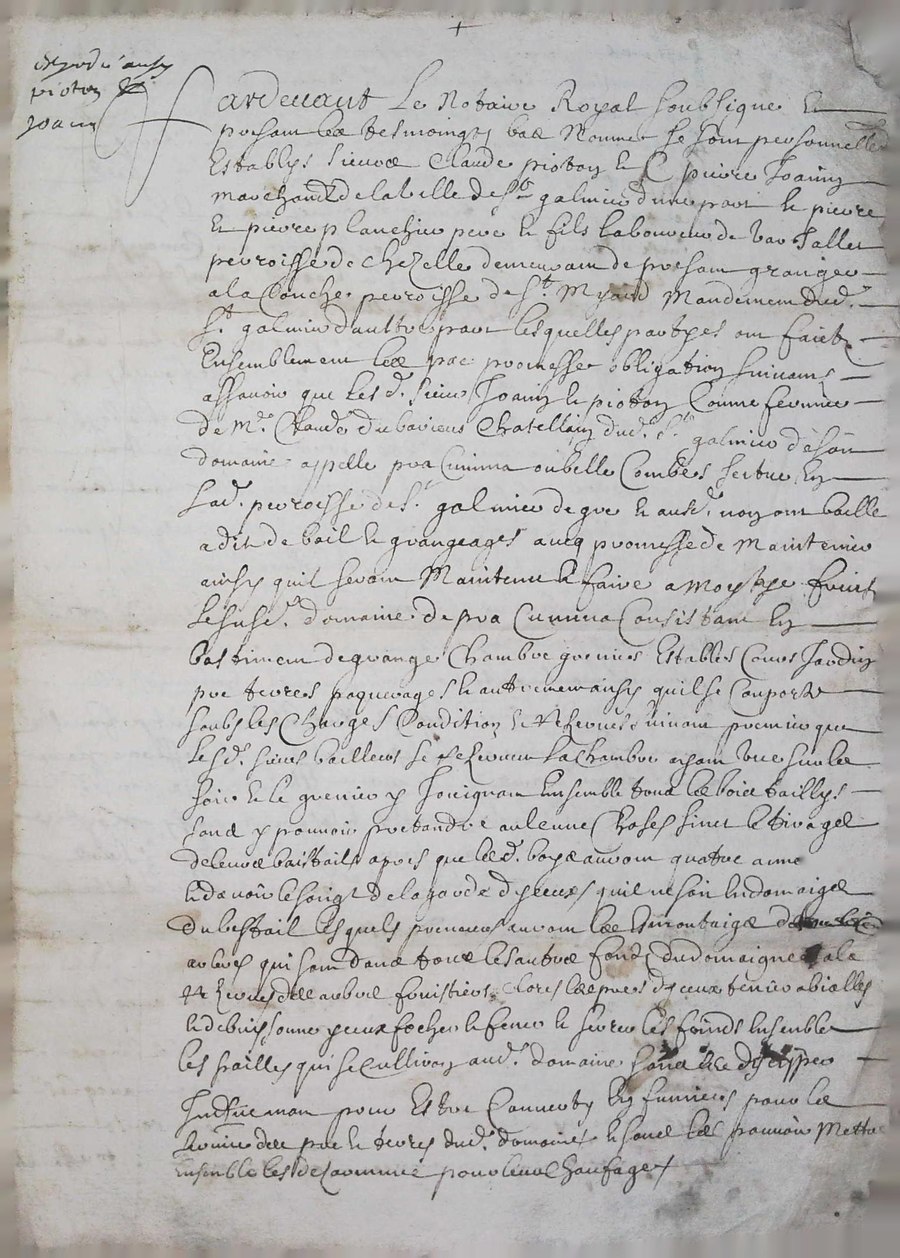 expedié aux
pioton &
Joanin
Pardevant Le Notaire Royal soubsigne Et
presant les tesmoingtz bas Nommes se sont personnelle
Establys sieurs Claude pioton & pierre Joanin
marchandz de la ville de St galmier d'une part & pierre
Et pierre planchier pere & fils laboureurs de
perroisse de Chezelle demeurant de presant granger
a la Conche perroisse de St Myard Mandement dud.
St galmier d'auttre part lesquelles partyes ont faict
Ensemblement les pac promesse obligation suivans
assavoir que lesd. sieurs Joanin & pioton Comme fermier
de Mr. Claude dubavieus Chatellain dud. St galmier de son
domaine appelle pra Cumma ou belle Combes scitue En
lad. perroisse de St galmier de gre & ont baille
a dit de bail & grangeages avecq promesse de Maintenir
ainsy quil seront Maintenu & faire a Moytye fruict
Le susd. domaine de pra Cumma Consistant En
bastiment de grange Chambre grenier Estables Cours Jardin
pre terres paquerages & autrement ainsy quil se Comporte
soubs les Charges Condition & Rezerves suivant premier que
Lesd. sieurs bailleurs se Rezervent La Chambre ayant vue sur le
soir & le grenier y Joignant Ensemble tous les bois taillys
sans y pouvoir pretandre aulcune Choses sinon le tirage
de leurs baistails apres que lesd. boys auront quatre anne
& davoir le soing de la garde d'yceux quil ne soit Endomaige
du bestail lesquels preneurs auront les Esmontaige
arbres qui sont dans tous les autres fondz du domaigne a la
Rezerves des arbres fruictiers Clores les pres d'yceux tenir
& de buissonne yceux focher & fener & serrer les foinds Ensemble
les pailles qui se Cultivon aud. domaine sans
pour Estre Converty En fumiers pour le
des pre & terres dud. domaine & sans les pouvoir Mettre
Ensemble les pour leur Chaufage